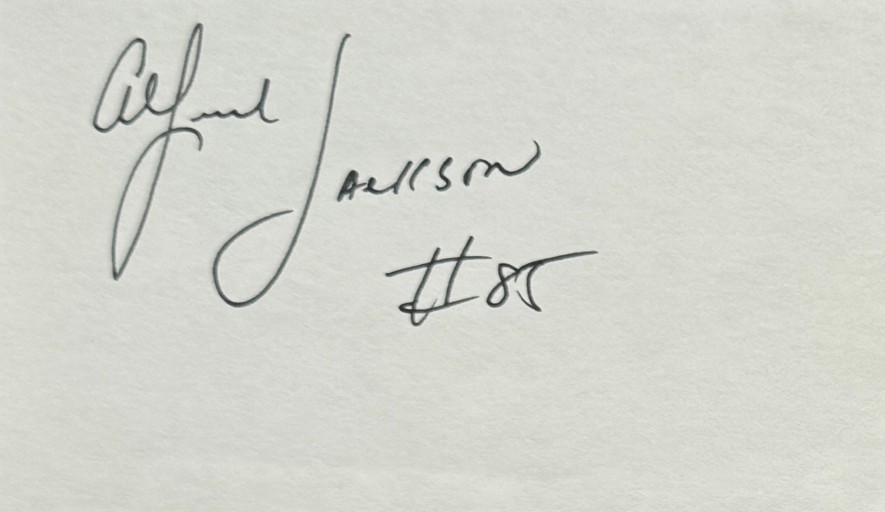 Alfred Jackson
#85